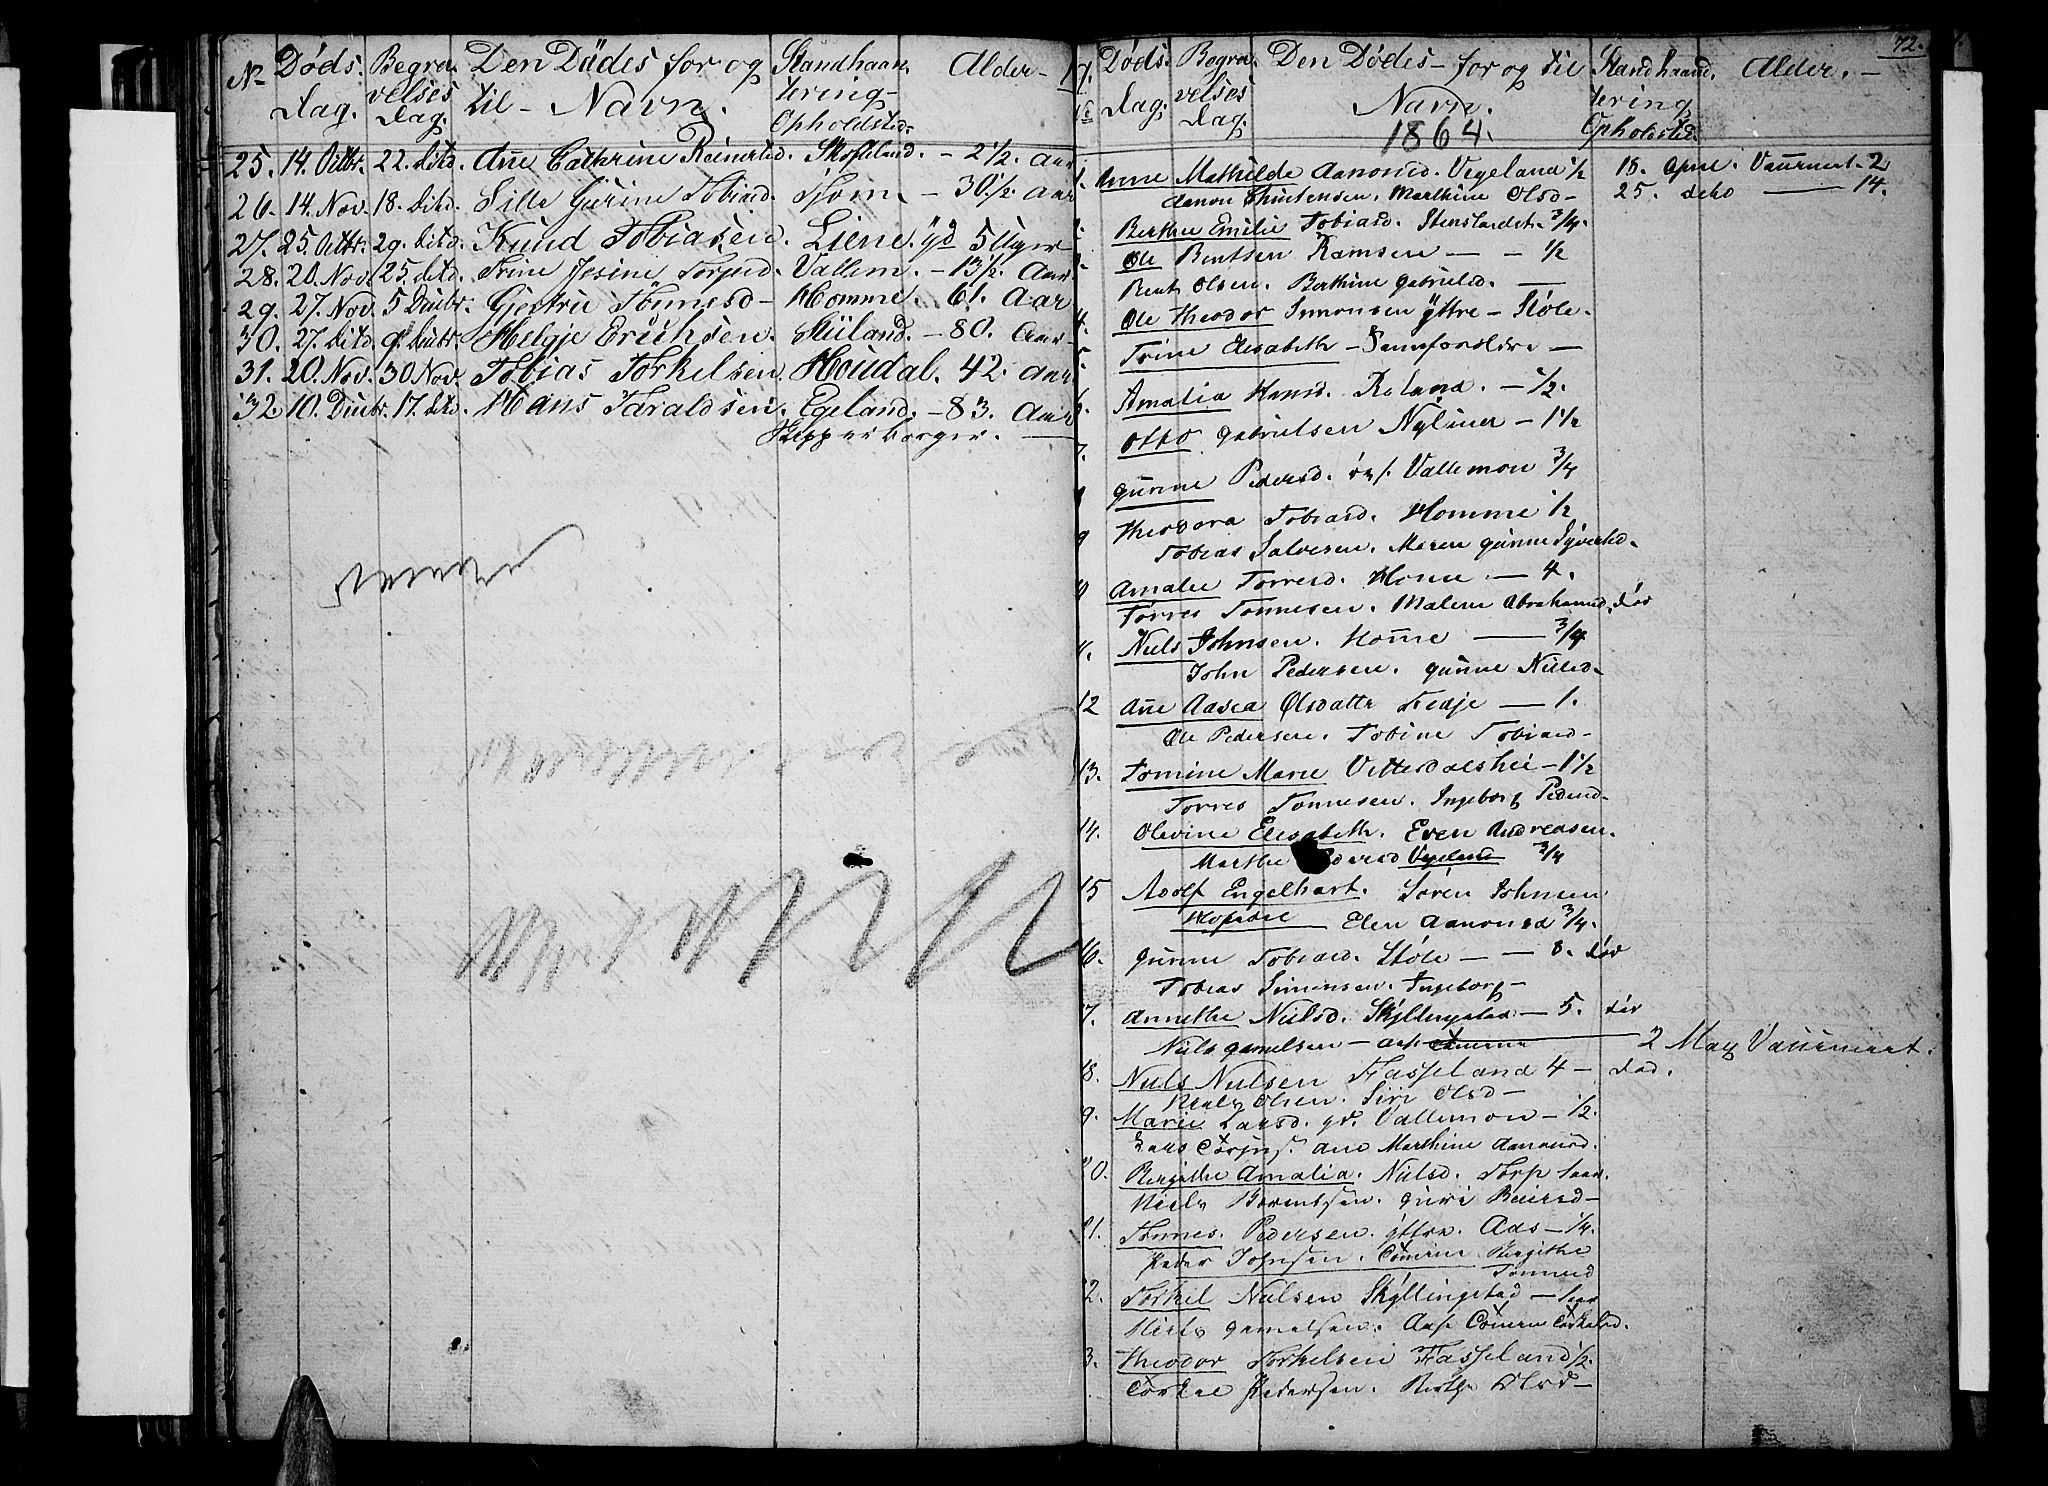 No Döds Dag. Begravelses Dag. Den Dödes for og til - Navn. Stand haantering - Opholdsted. Alder -
25. 14. Octbr. 22. ditd. Añe Cathrine Reinertsd. Skofteland. - 2 1/2. Aar
26. 14. Nov. 18. Ditd. Sille Gurine Tobiasd. Tjom. - 30 1/2. Aar
27. 25. Octbr. 29. ditd. Knud Tobiasen. Liene. yd 5 Uger
28. 20. Nov. 25. ditd. Trine Jesine Torjusd. Vallem. - 13 1/2. Aar
29. 27. Nov. 5 Decbr. Gjertrue Tönnesd - Homme. 61. Aar
30. 27. ditd. 9. Decbr. Helgje Erichsen. - 80. Aar
31. 20. Nov. 30 Nov. Tobias Torkelsen. Houdal. 42. Aar
32. 10. Decbr. 17. ditd. Hans Taraldsen. Egeland. - 83. Aar
72.
Döds Dag. Begravelses Dag. Den Dödes - for og til Navn. Stand haandtering Opholdsted. Alder. -
1864.
1. Anne Mathilde Aanonsd. Vegeland 1/2 18. Vauineret. 2
Aanon Christensen. Marthine Olsd - 25. deto — 14.
2. Berthe Emilie Tobiasd. Stenslandst. 3/4.
3. Ole Bentsen Ramsen — - 1/2
Bent Olsen. Berthine Gabrielsd. —
4. Ole Theodor Simonsen Yttre - Støle.
5. Trine Elisabeth - Samforeldre —
6. Amalia Hansd. Röland. - 1/2.
7. Otto Gabrielsen Nyliner - 1 1/2
8 Gunne Pedersd. Vallemon 3/4
9 Theodora Tobiasd. Homme 1/2
Tobias Salvesen. Maren Gunne Syvertsd.
10 Amalie Torresd. Home — 4.
Torres Tønnesen. Malene Abrahamsd. død
11. Niels Johnsen. Hom̃e — 3/4
John Pedersen. Gunne Nielsd.
12 Añe Aasea Olsdatte Fedje — 1.
Ole Pedersen. Tobine Tobiasd -
13. Tomine Marie Vetterdalshei - 1 1/2
Torres Tonnesen. Ingeborg Pedersd -
14. Olevine Elisabeth. Even Andreasen.
Marthe Vegeland 3/4
15 Adolf Engelhart. Søren Johnsen
Elen Aanonsd 3/4.
16. Gunne Tobiasd. Støle — - 8. død
Tobias Simonsen. Ingeborg -
17. Annethe Nielsd. Skyllingstad — 5. død
Niels Gamelsen - 2 May Vauineret.
18. Niels Nielsen Fasseland 4 - død.
Niels Olsen. Siri Olsd -
19. Marie Larsd. Vallemon - 1/2.
Lars Ane Marthine Aanonsd.
20. Bergithe Amalia. Nielsd. Torp 1 aar.
Niels Berentsen. Guri
21. Tønnes. Pedersen yttre. Aas - 1/4.
Peder Johnsen. Bergithe
Tønnesd
22. Torkel Nielsen Skyllingstad - 1 aar
Niels Gamelsen.
23. Theodor Torkelsen Fasseland 1/2.
Torkel Pedersen. Berthe Olsd -